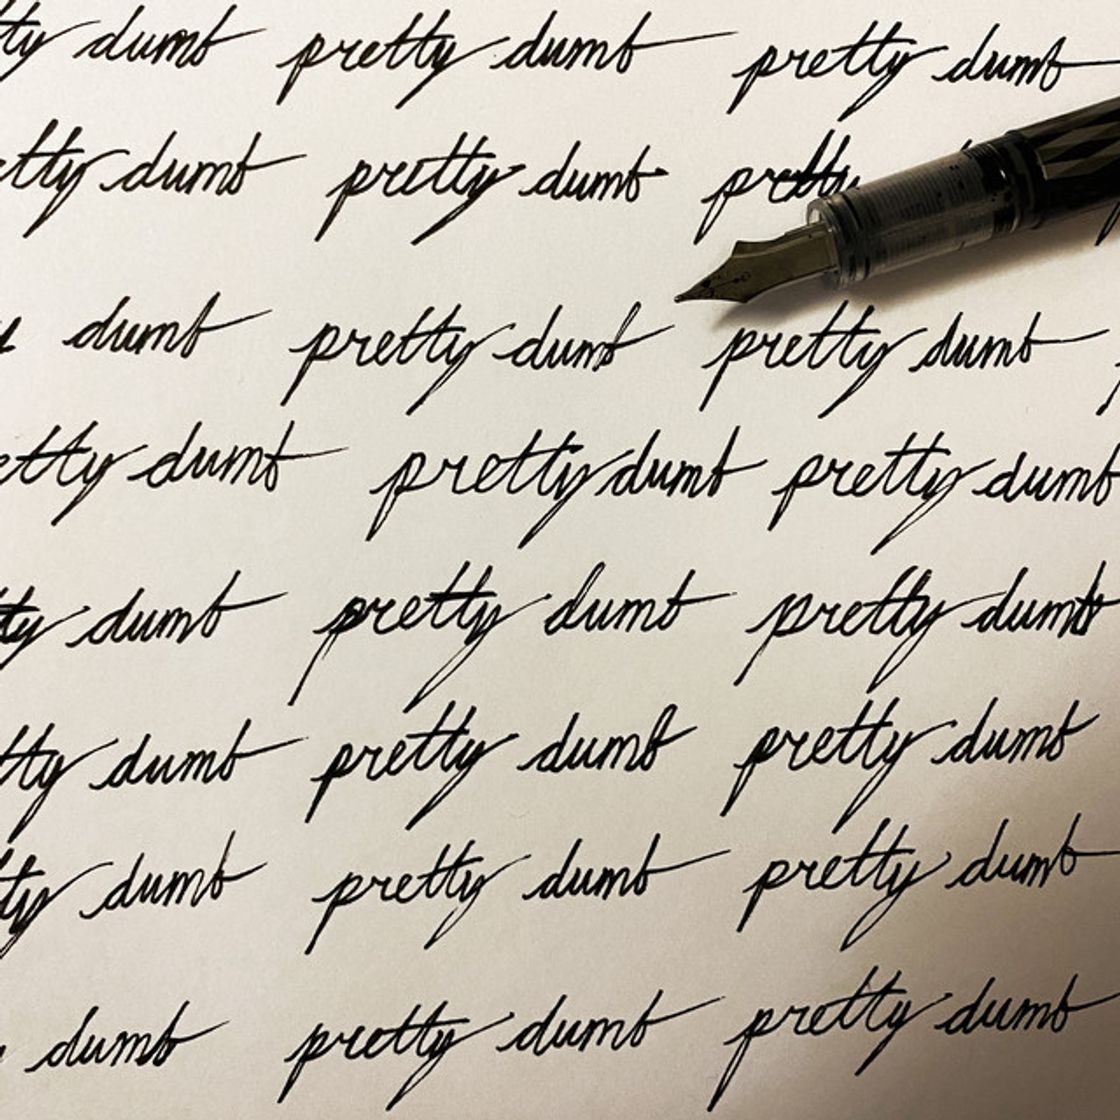 tty dumb pretty dumb pretty dumb
etty dumb pretty dumb pretty
dumb pretty dumb pretty dumb
etty dumb pretty dumb pretty dumb
tty dumb pretty dumb pretty dumb
tty dumb pretty dumb pretty dumb
tty dumb pretty dumb pretty dumb
dumb pretty dumb pretty dumb